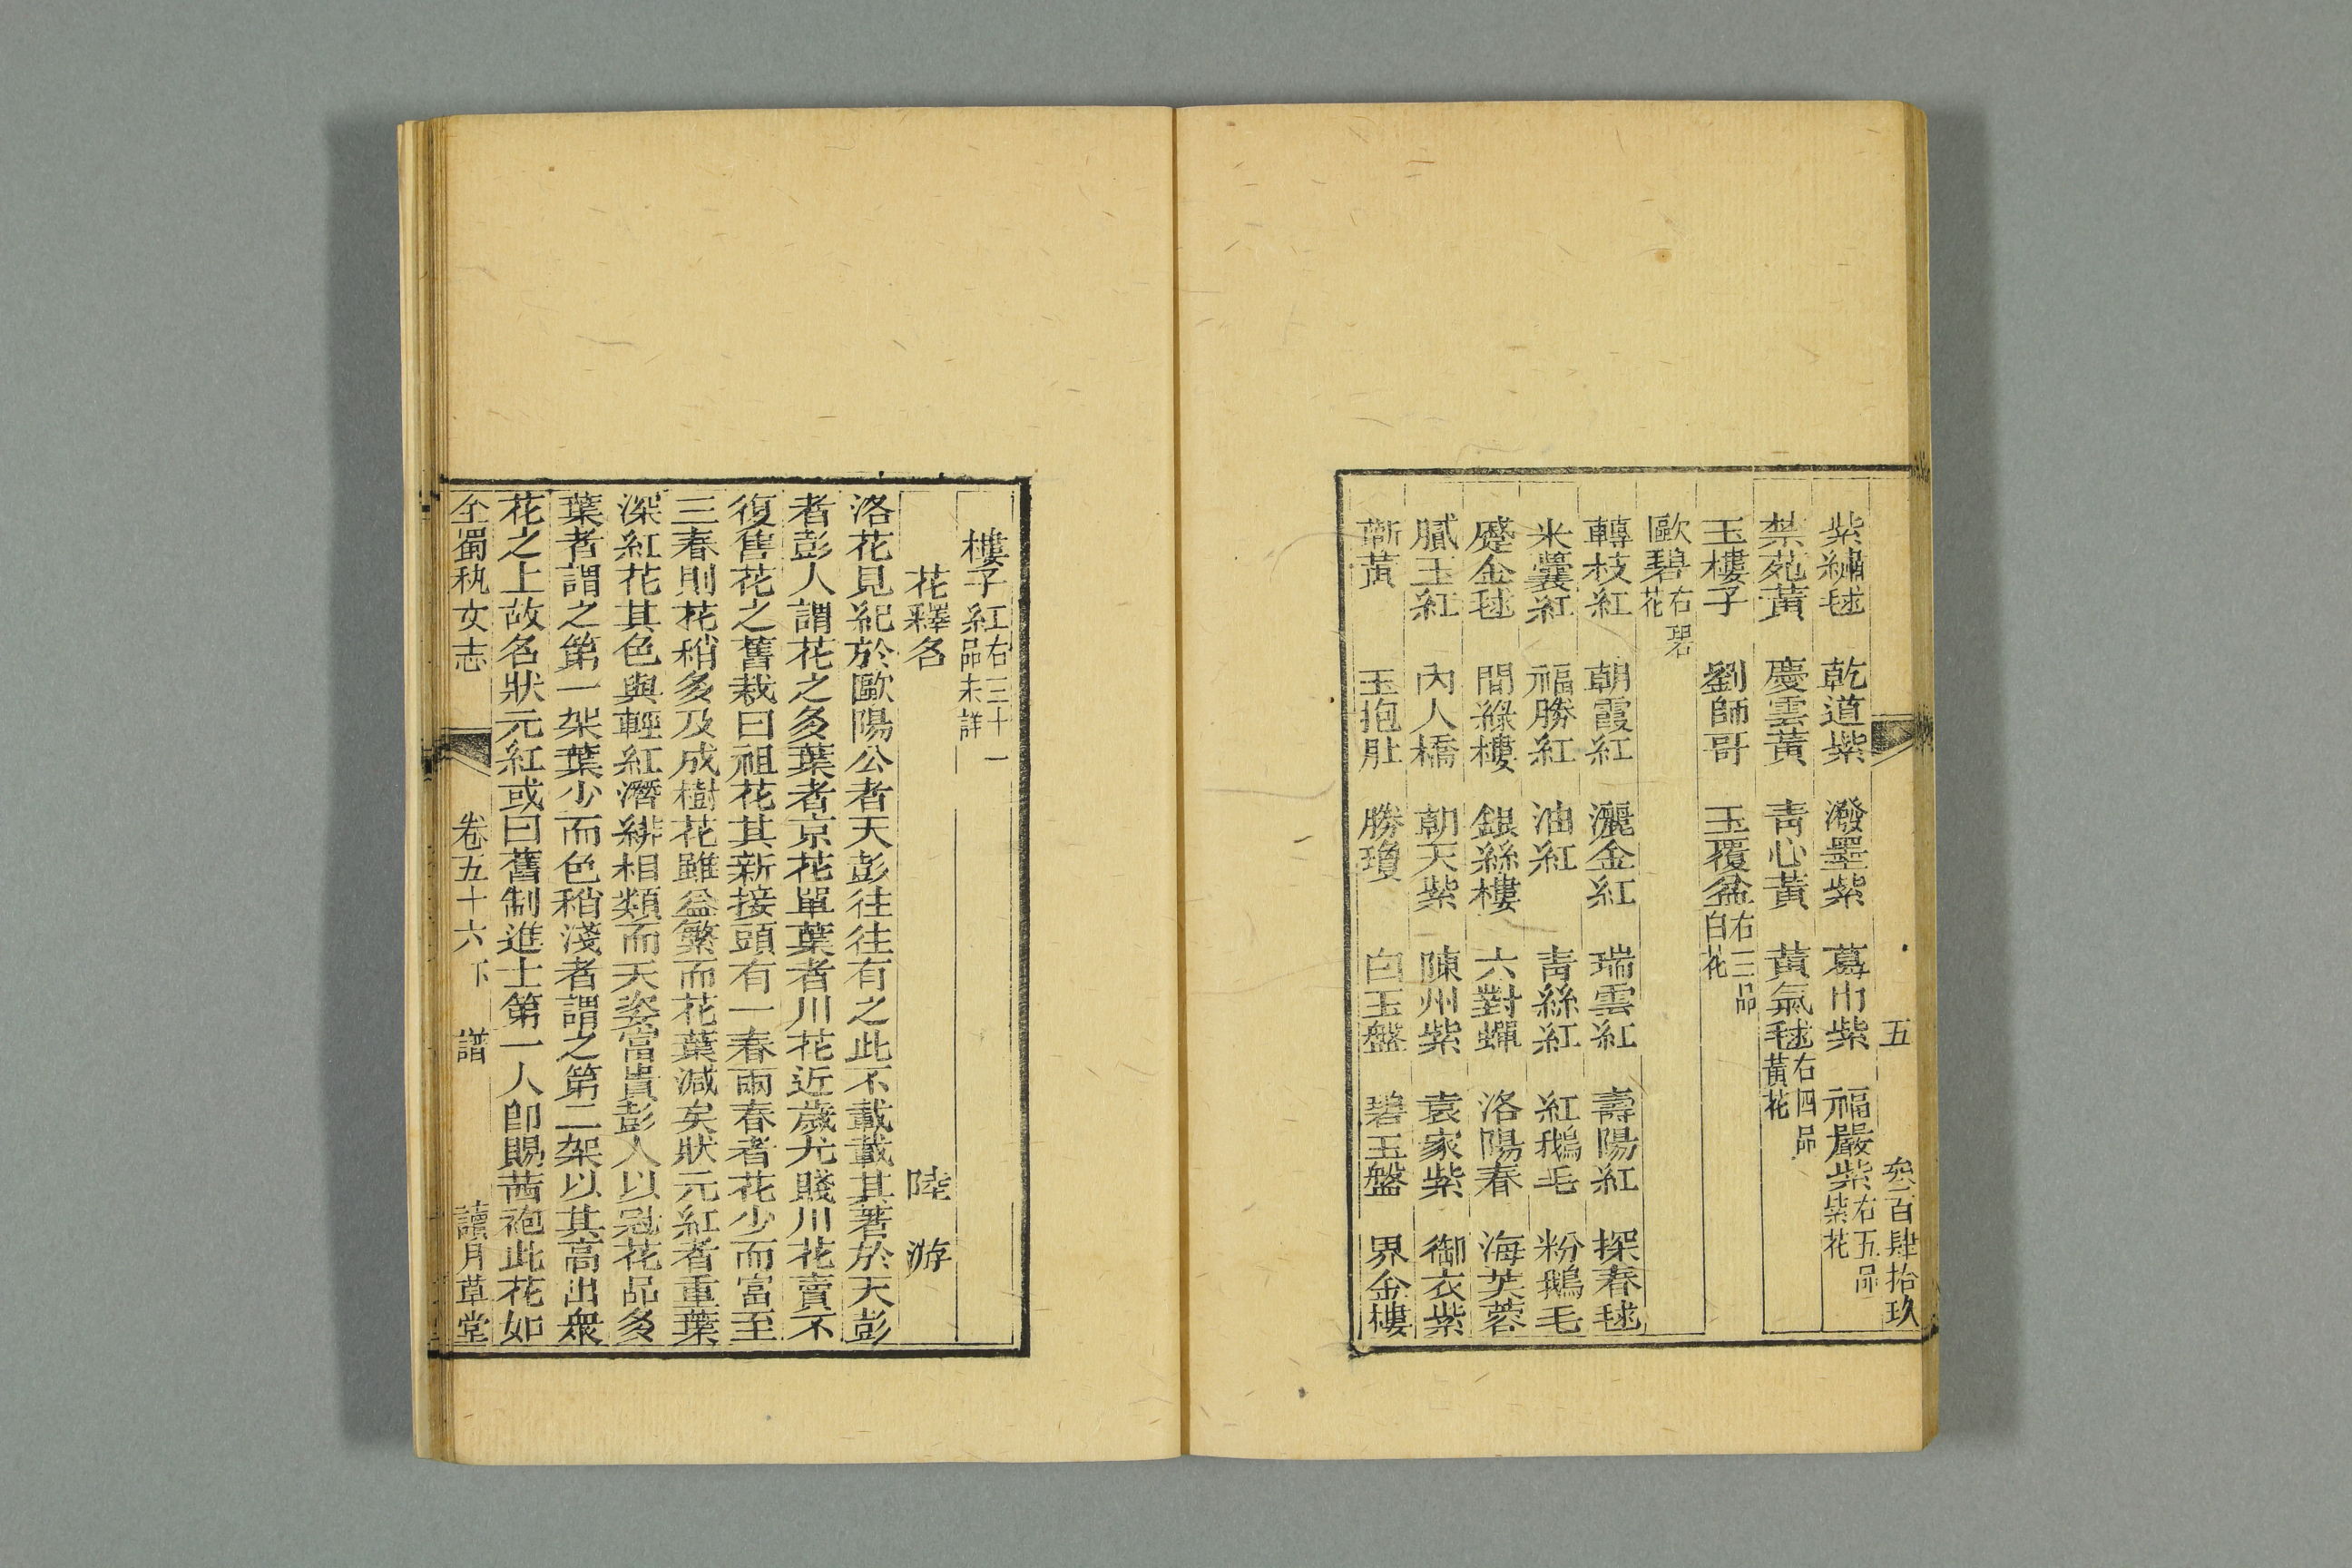 五　叁百肆拾玖
紫繡毬　乾道紫　潑墨紫　葛巾紫　福嚴紫右五品紫花
禁苑黃　慶雲黃　靑心黃　黃氣毬右四品黃花
玉樓子　劉師哥　玉覆盆右三品白花
歐碧右碧花
轉枝紅　朝霞紅　灑金紅　瑞雲紅　壽陽紅　探春毬
米囊紅　福勝紅　油紅　靑絲紅　紅鵝毛　粉鵝毛
蹙金毬　間綠樓　銀絲樓　六對蟬　洛陽春　海芙蓉
膩玉紅　內人橋　朝天紫　陳州紫　袁家紫　御衣紫
蘄黃　玉抱肚　勝瓊　白玉盤　碧玉盤　界金樓
樓子紅右三十一品未詳
花釋名　陸游
洛花見紀於歐陽公者天彭往往有之此不載載其著於天彭
者彭人謂花之多葉者京花單葉者川花近歲尤賤川花賣不
復售花之舊栽曰祖花其新接頭有一春兩春者花少而富至
三春則花稍多及成樹花雖益繁而花葉減矣狀元紅者重葉
深紅花其色與輕紅潛緋相類而天姿富貴彭人以冠花品多
葉者謂之第一架葉少而色稍淺者謂之第二架以其高出衆
花之上故名狀元紅或曰舊制進士第一人卽賜茜袍此花如
全蜀秇文志　卷五十六下　譜　讀月草堂